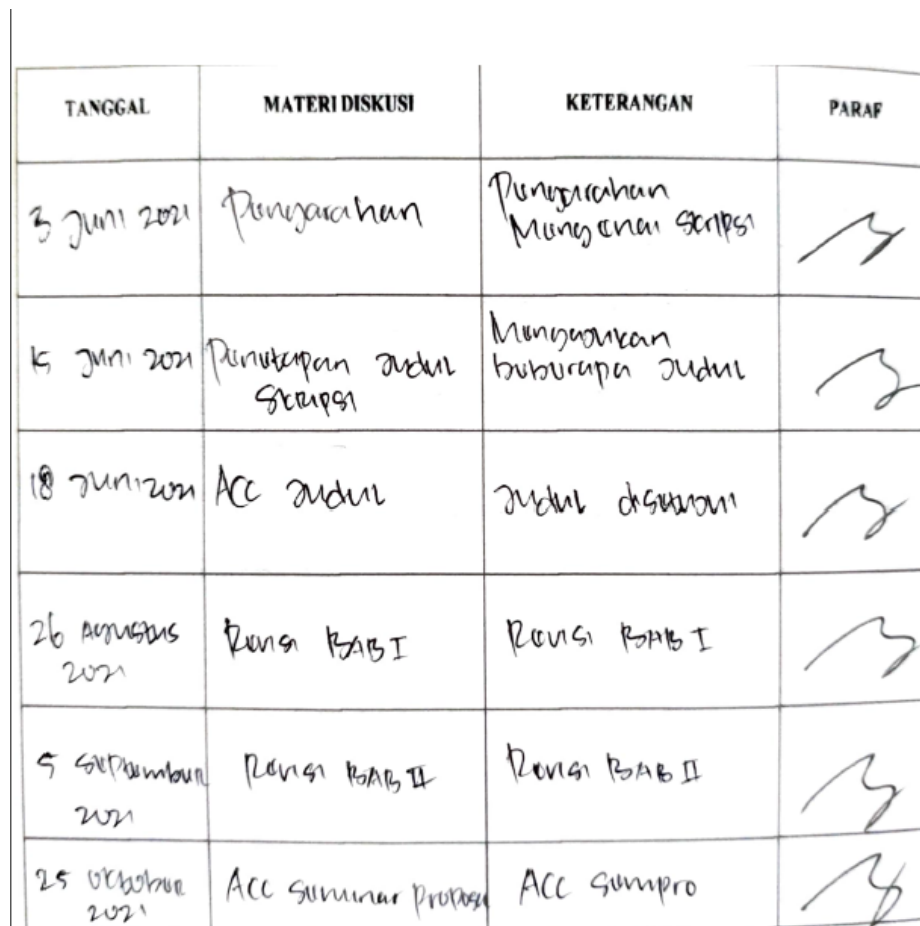 TANGGAL MATERI DISKUSI KETERANGAN PARAF
3 Juni 2021 Pengarahan Pengarahan
Mengenai Skripsi
15 Juni 2021 Penetapan Judul
Skripsi
Mengajukan
beberapa Judul
18 Juni 2021 ACC Judul Judul disetujui
26 Agustus
2021
Revisi BAB I Revisi BAB I
5 September
2021
Revisi BAB II Revisi BAB II
25 Oktober
2021
ACC Seminar Proposal ACC Sempro